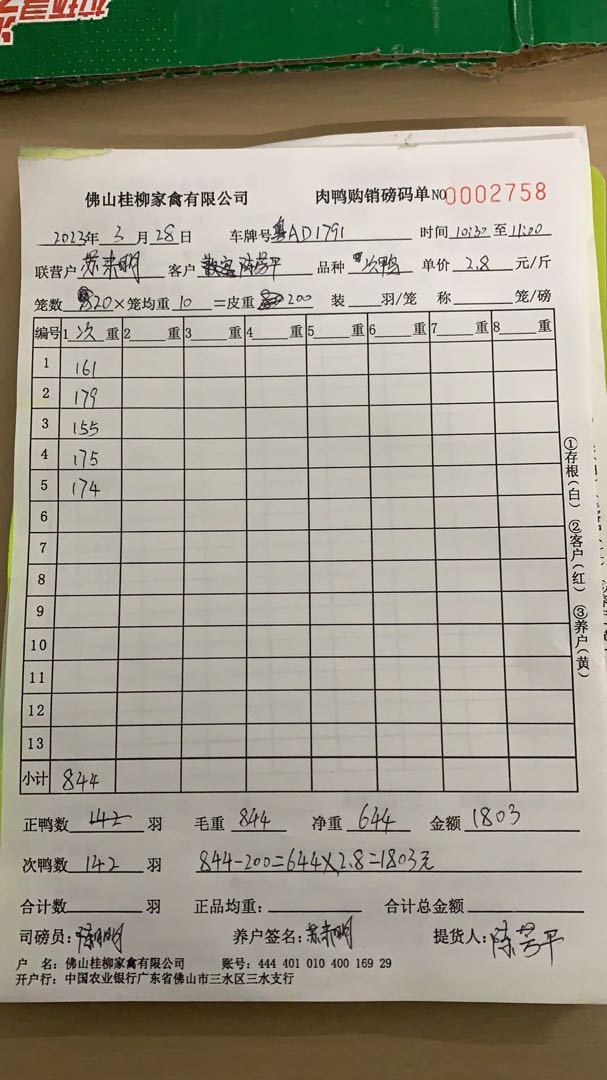 佛山桂柳家禽有限公司 肉鸭购销磅码单 NO 0002758
2023年 3 月 28 日 车牌号 粤AD1791 时间 10:30 至 11:00
联营户 苏来明 客户 散客 陈芳平 品种 次鸭 单价 2.8 元/斤
笼数 20 × 笼均重 10 = 皮重 200 装 羽/笼 称 笼/磅
编号 1 次 重 2 重 3 重 4 重 5 重 6 重 7 重 8 重
1 161
2 179
3 155
4 175
5 174
6
7
8
9
10
11
12
13
小计 844
①存根(白) ②客户(红) ③养户(黄)
正鸭数 142 羽 毛重 844 净重 644 金额 1803
次鸭数 142 羽 844-200=644×2.8=1803元
合计数 羽 正品均重: 合计总金额
司磅员: 养户签名: 苏来明 提货人: 陈芳平
户 名: 佛山桂柳家禽有限公司 账号: 444 401 010 400 169 29
开户行: 中国农业银行广东省佛山市三水区三水支行